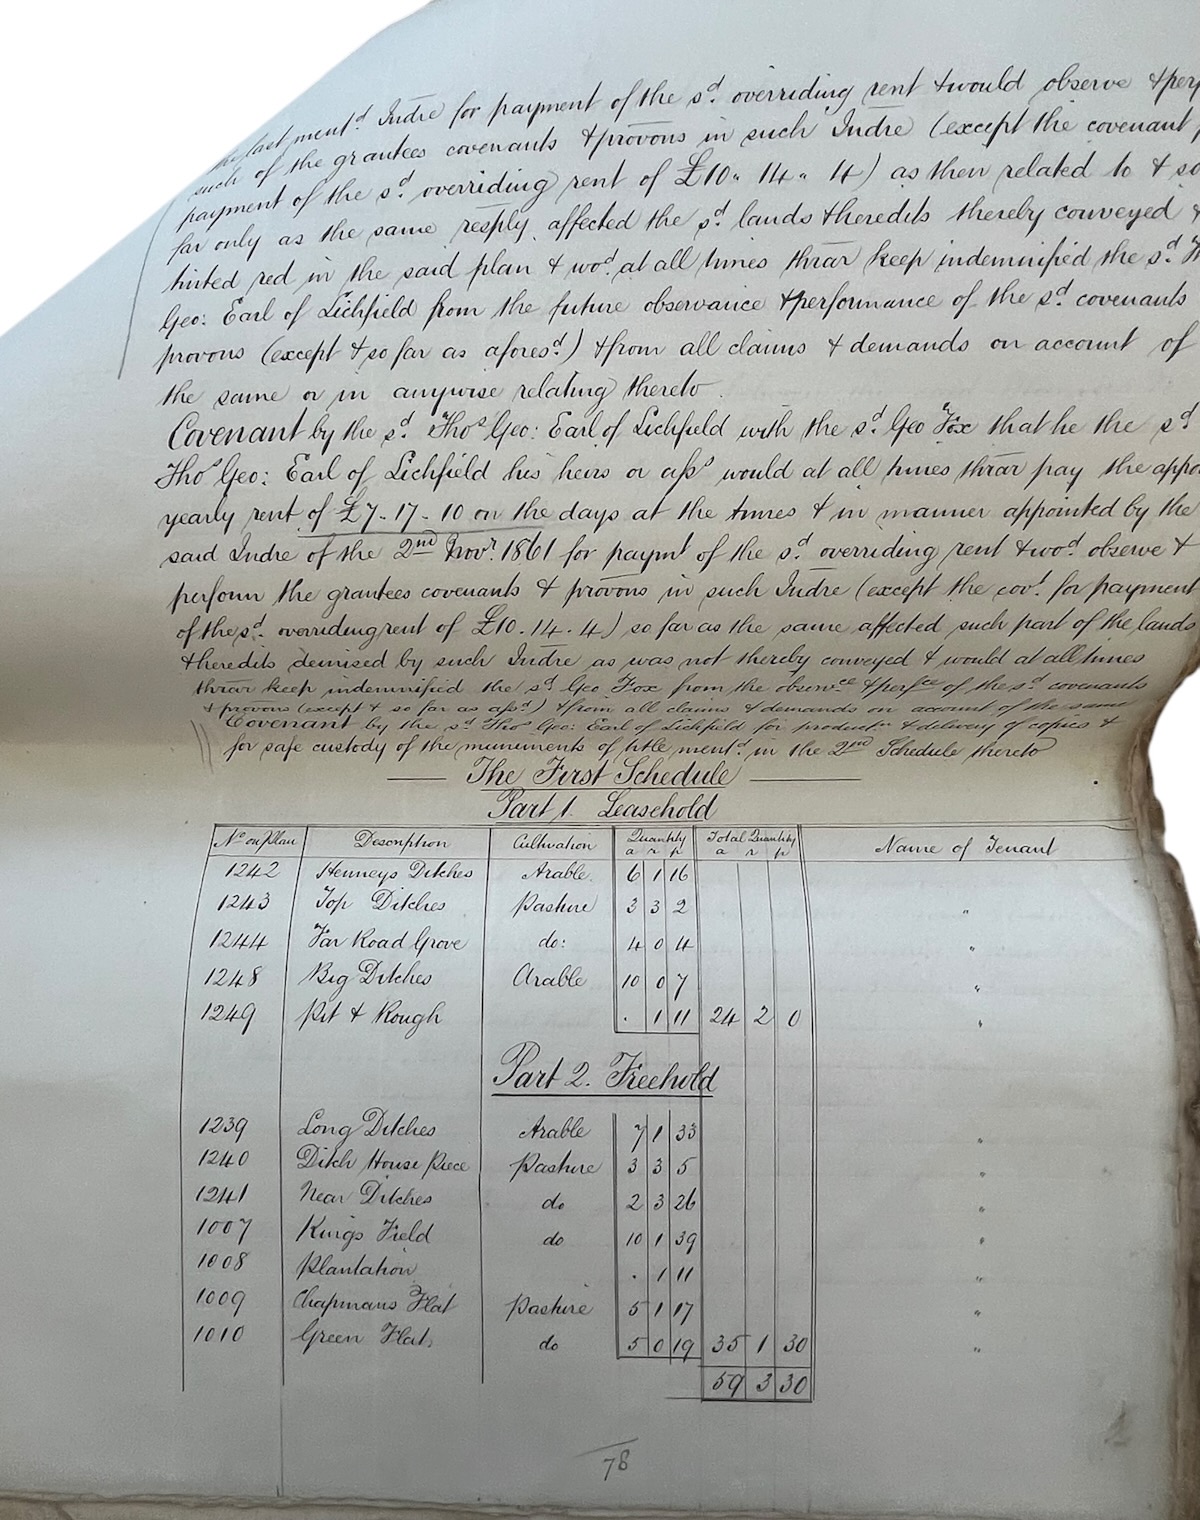 the last mentd. Indre for payment of the sd. overriding rent & would observe & perf
such of the grantees covenants & provons in such Indre (except the covenant
payment of the sd. overriding rent of £10„ 14„ 4) as then related to & so
far only as the same resply. affected the sd. lands & heredits thereby conveyed &
tinted red in the said plan & wod. at all times thrar keep indemnified the sd.
Geo: Earl of Lichfield from the future observance & performance of the sd covenants
provons (except & so far as aforesd.) & from all claims & demands on account of
the same or in anywise relating thereto.
Covenant by the sd. Thos Geo: Earl of Lichfield with the sd. Geo Fox that he the sd
Thos Geo: Earl of Lichfield his heirs or asss would at all times thrar pay the appo
yearly rent of £7-17-10 on the days at the times & in manner appointed by the
said Indre of the 2nd Novr. 1861 for paymt of the sd. overriding rent & wod. observe &
perform the grantees covenants & provons in such Indre (except the covt. for payment
of the sd. overriding rent of £10.14.4) so far as the same affected such part of the lands
& heredits demised by such Indre as was not thereby conveyed & would at all times
thrar keep indemnified the sd. Geo Fox from the observce & perfce of the sd. covenants
& provons (except & so far as afsd.) & from all claims & demands on account of the same
Covenant by the sd. Thos Geo: Earl of Lichfield for productn & delivery of copies &
for safe custody of the muniments of title mentd. in the 2nd Schedule thereto
The First Schedule
Part 1. Leasehold
No on Plan Description Cultivation Quantity Total Quantity Name of Tenant
a r p a r p
1242 Henneys Ditches Arable 6 1 16
1243 Top Ditches Pasture 3 3 2 "
1244 Far Road Grove do: 4 0 4 "
1248 Big Ditches Arable 10 0 7 "
1249 Pit & Rough . 1 11 24 2 0 "
Part 2. Freehold
1239 Long Ditches Arable 7 1 33 "
1240 Ditch House Piece Pasture 3 3 5 "
1241 Near Ditches do 2 3 26 "
1007 Kings Field do 10 1 39 "
1008 Plantation . 1 11 "
1009 Chapmans Flat Pasture 5 1 17 "
1010 Green Flat do 5 0 19 35 1 30 "
59 3 30
78